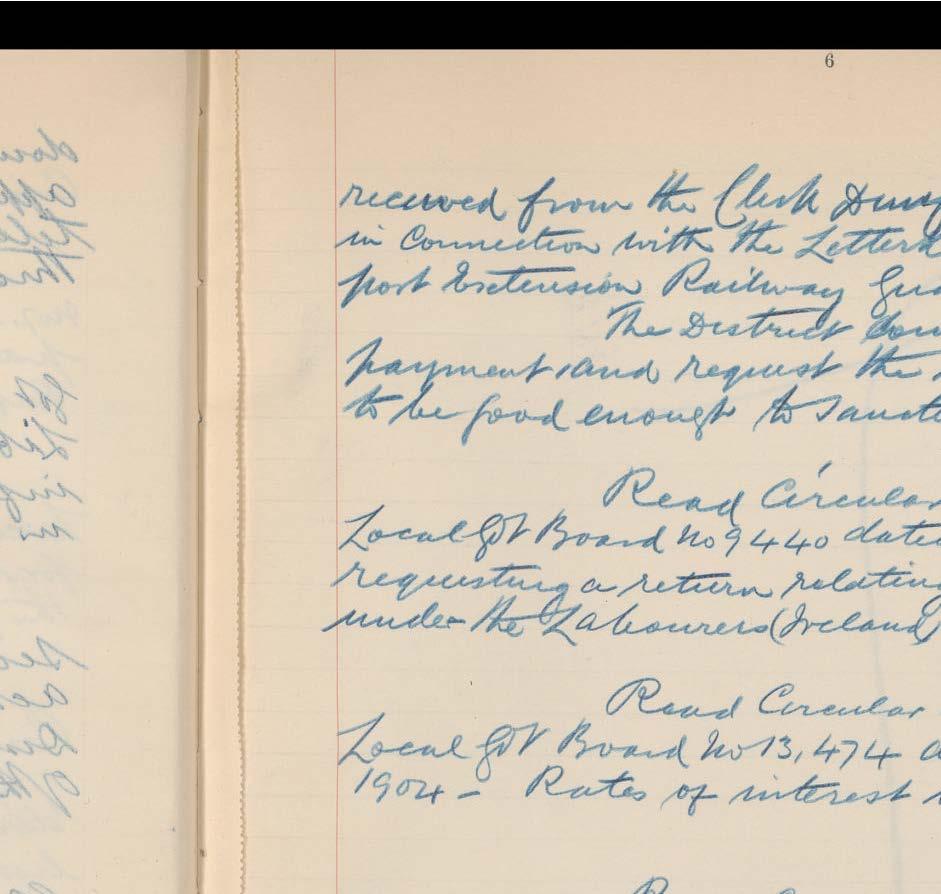 6
received from the Clerk Dung
in Connection with the Letterk
post Extension Railway Gua
The District Coun
payment and request the
to be good enough to sancti
Read Circular
Local Gvt Board No 9440 date
requesting a return relating
under the Labourers (Ireland)
Read Circular
Local Gvt Board No 13,474
1904 - Rates of interest